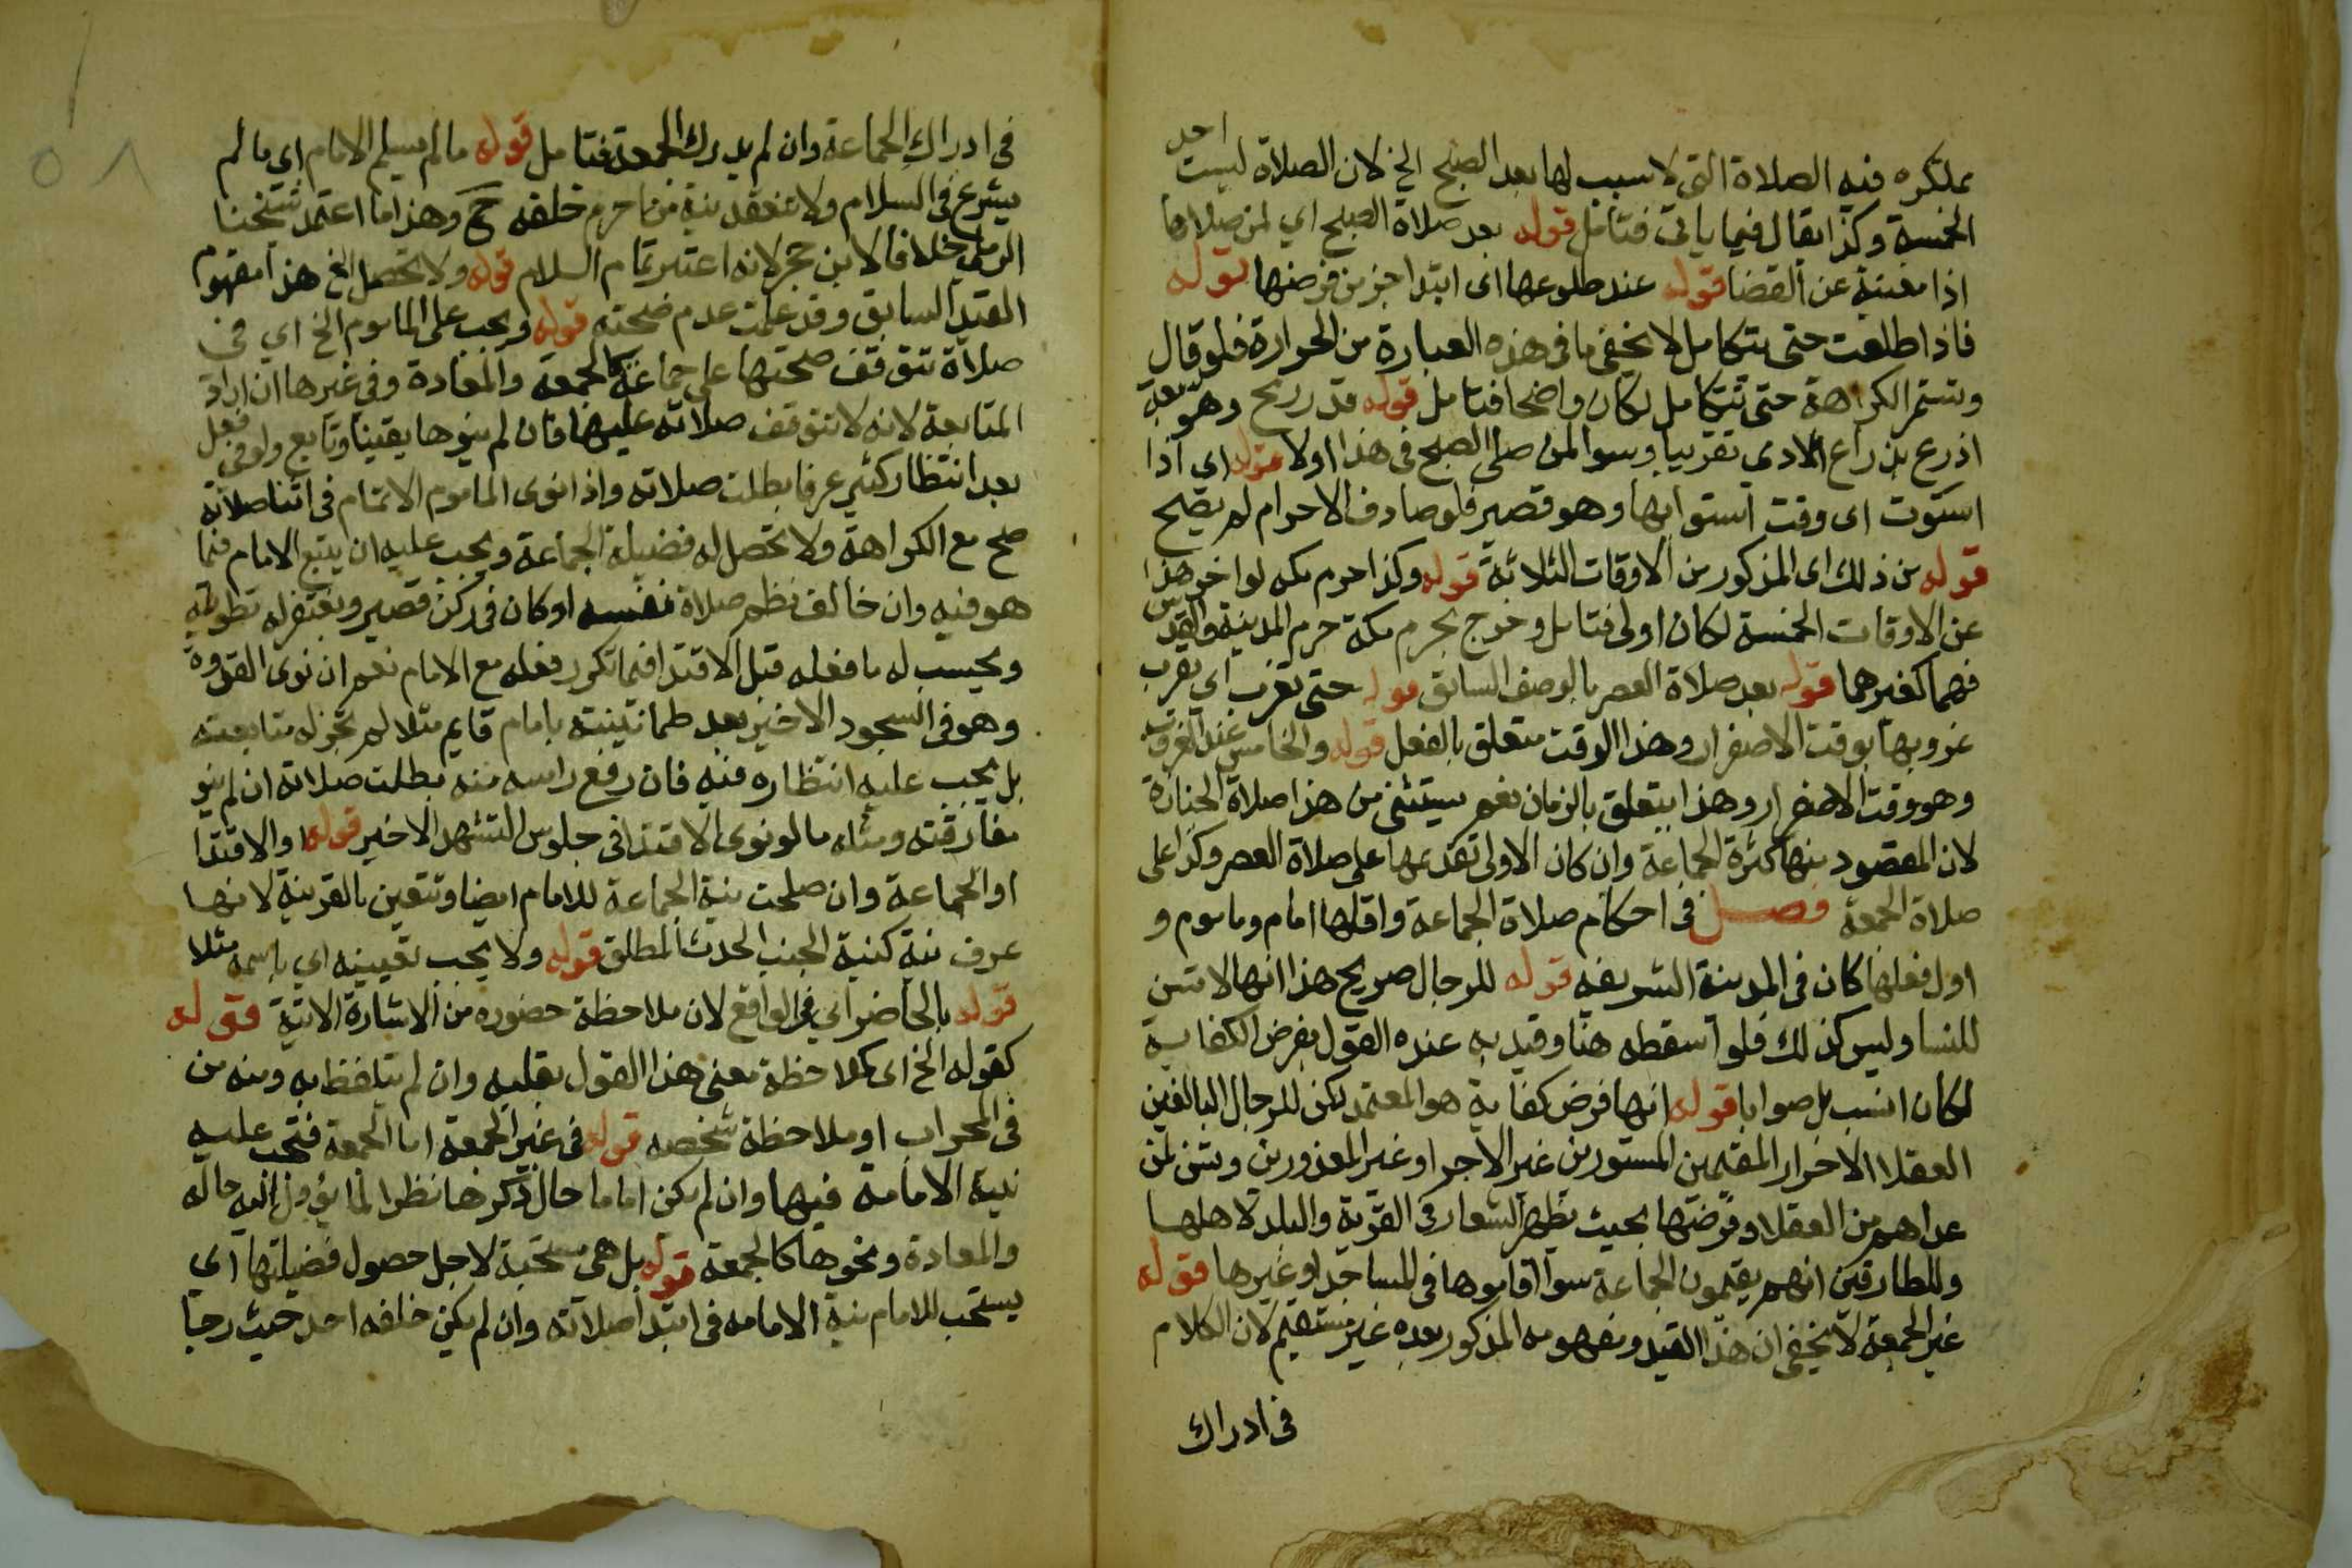 احد
بملكره فيه الصلاة التي لا سبب لها بعد الصبح الخ لان الصلاة ليست
الخمسة وكذا يقال فيما ياتي فتامل قوله بعد صلاة الصبح اي لمن صلاها
اذا مغنية عن القضا قوله عند طلوعها اى ابتدا جز من قرصها قوله
فاذا طلعت حتى تتكامل لا يخفى ما فى هذه العبارة من الحرارة فلو قال
وتستمر الكراهة حتى تتكامل لكان واضحا فتامل قوله قدر رمح وهو سبعة
اذرع بذراع الادمي تقريبا وسوا لمن صلى الصبح فى هذا اولا قوله اى اذا
استوت اى وقت استوايها وهو قصير فلو صادف الاحرام لم يصح
قوله من ذلك اى المذكور من الاوقات الثلاثة قوله وكذا حرم مكه لو اخر هذا
عن الاوقات الخمسة لكان اولى فتامل وخرج بحرم مكة حرم المدينة والقدس
فهما كغيرهما قوله بعد صلاة العصر بالوصف السابق قوله حتى تغرب اي يقرب
غروبها بوقت الاصفرار وهذا الوقت متعلق بالفعل قوله والخامس عند الغروب
وهو وقت الاصفرار وهذا يتعلق بالزمان نعم يستثنى من هذا صلاة الجنازة
لان المقصود منها كثرة الجماعة وان كان الاولى تقديمها على صلاة العصر وكذا على
صلاة الجمعة فصل فى احكام صلاة الجماعة واقلها امام وماموم و
اول فعلها كان فى المدينة الشريفه قوله للرجال صريح هذا انها لا تسن
للنسا وليس كذلك فلو اسقطه هنا وقيد به عنده القول بفرض الكفاية
لكان انسب بل صوابا قوله انها فرض كفاية هو المعتمد لكن للرجال البالغين
العقلا الاحرار المقيمين المستورين غير الاجرا وغير المعذورين وتسن لمن
عداهم من العقلا وفرضها بحيث يظهر الشعار فى القرية والبلد لاهلها
وللطارقين انهم يقيمون الجماعة سوا اقاموها فى المساجد او غيرها قوله
غير الجمعة لا يخفى ان هذا القيد ومفهومه المذكور بعده غير مستقيم لان الكلام
فى ادراك
فى ادراك الجماعة وان لم يدرك الجمعة فتامل قوله ما لم يسلم الامام اى ما لم
يشرع فى السلام ولا تنعقد نية من احرم خلفه ح وهذا ما اعتمد شيخنا
الرملى خلافا لابن حجر لانه اعتبر تمام السلام قوله ولا تحصل الخ هذا مفهوم
القيد السابق وقد علمت عدم صحته قوله ويجب على الماموم الخ اي فى
صلاة تتوقف صحتها على جماعة كالجمعة والمعادة وفى غيرها ان اراد
المتابعة لانه لا تتوقف صلاته عليها فان لم ينوها يقينا وتابع ولو فى فعل
بعد انتظار كثير عرفا بطلت صلاته واذا نوى الماموم الاتمام فى اثنا صلاته
صح مع الكراهة ولا تحصل له فضيلة الجماعة ويجب عليه ان يتبع الامام فيما
هو فيه وان خالف نظم صلاة نفسه او كان فى ركن قصير ويغتفر له تطويله
ويحسب له ما فعله قبل الاقتدا فيما تكرر فعله مع الامام نعم ان نوى القدوة
وهو فى السجود الاخير بعد طمانينته بامام قايم مثلا لم تجز له متابعته
بل يجب عليه انتظاره فيه فان رفع راسه منه بطلت صلاته ان لم ينو
مفارقته ومثله ما لو نوى الاقتدا فى جلوس التشهد الاخير قوله والاقتدا
او الجماعة وان صلحت نية الجماعة للامام ايضا وتتعين بالقرينة لانها
عرف نية كنية الجنب الحدث المطلق قوله ولا يجب تعيينه اي باسمه مثلا
قوله بالحاضر اي فى الواقع لان ملاحظة حضوره من الاشارة الاتية قوله
كقوله الخ اى كملاحظة معنى هذا القول بقلبه وان لم يتلفظ به ومنه من
فى المحراب او ملاحظة شخصه قوله فى غير الجمعة اما الجمعة فتجب عليه
نية الامامة فيها وان لم يكن اماما حال ذكرها نظرا لما يؤول اليه حاله
والمعادة ونحوها كالجمعة قوله بل هى مستحبة لاجل حصول فضيلتها اي
يستحب للامام نية الامامه فى ابتدا صلاته وان لم يكن خلفه احد حيث رجا